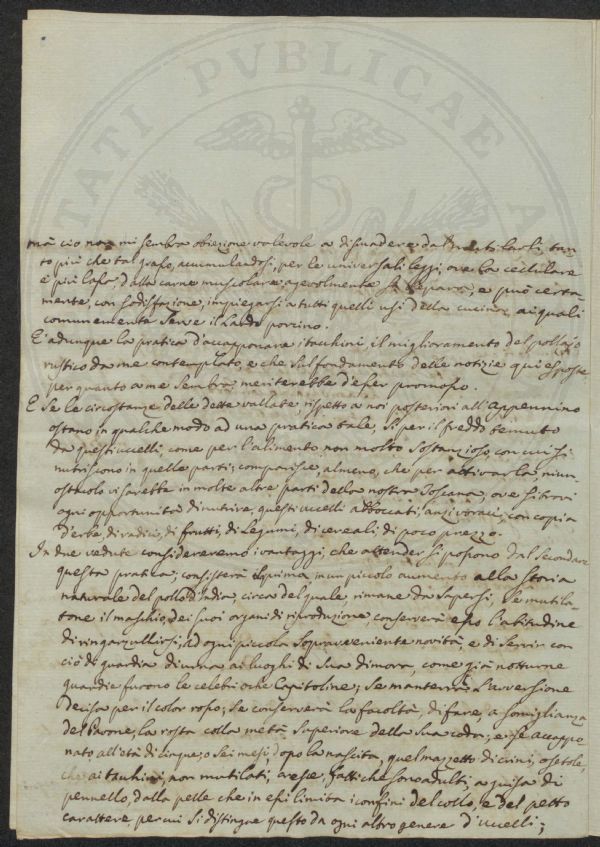 TATI PVBLICAE
ma ciò non mi sembra obiezione valevole a disuadere da mutilarli, tan-
to più che tal grasso, accumulandosi, per le universali leggi, ove la cellulare
è più lassa, dalla carne muscolare agevolmente si separa, e può certa-
mente, con sodisfazione, impiegarsi a tutti quelli usi della cucina, ai quali
comunemente serve il Lardo porcino.
E' adunque la pratica d'accapponare i tacchini, il miglioramento del pollajo
rustico da me contemplato, e che sul fondamento delle notizie qui esposte
per quanto a me sembra, meriterebbe d'esser promosso.
E se le circostanze delle dette vallate, rispetto a noi posteriori all'Appennino
ostano in qualche modo ad una pratica tale, sì per il freddo temuto
da questi uccelli, come per l'alimento non molto sostanzioso, con cui si
nutriscono in quelle parti; comparisce, almeno, che per attivarla, niun
ostacolo vi sarebbe in molte altre parti della nostra Toscana, ove si trovi
ogni opportunità di nutrire, questi uccelli anzi voraci, con copia
d'erbe, di radici, di frutti, di Legumi, di cereali di poco prezzo.
In due vedute considereremo i vantaggi, che attender si possono dal secondare
questa pratica; consisterà la prima in un piccolo aumento alla storia
naturale del pollo d'India, circa del quale rimane da sapersi, se mutila-
tone il maschio, dei suoi organi di riproduzione, conserverà esso l'abitudine
di ringarzullirsi, ad ogni piccola sopravveniente novità, e di servir con
ciò di guardia diurna ai luoghi di sua dimora, come già notturne
guardie furono le celebri oche Capitoline; se manterrà l'avversione
decisa per il color rosso; se conserverà la facoltà, di fare, a somiglianza
del Pavone, la rosta colla metà superiore della sua coda; e se accappo-
nato all'età di cinque, o sei mesi, dopo la nascita, quel mazzetto di crini, o setole,
che ai tacchini, non mutilati, fatti che sono adulti, a guisa di
pennello, dalla pelle che in essi limita i confini del collo, e del petto
carattere, per cui si distingue questo da ogni altro genere d'uccelli;